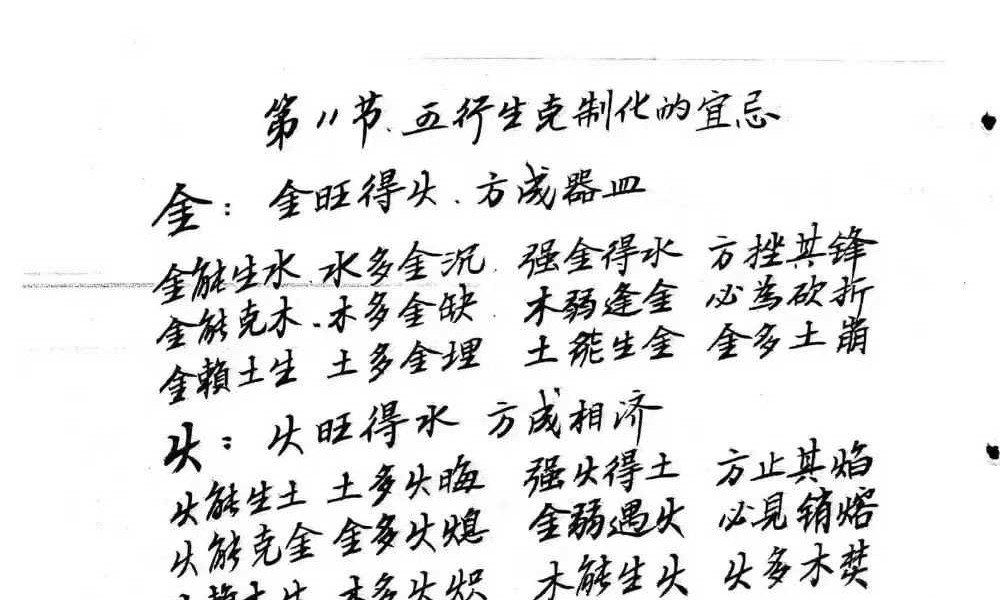 第11节、五行生克制化的宜忌
金：金旺得火、方成器皿
金能生水、水多金沉、强金得水 方挫其锋
金能克木、木多金缺、木弱逢金 必为砍折
金賴土生 土多金埋 土能生金 金多土崩
火：火旺得水 方成相济
火能生土 土多火晦 强火得土 方止其焰
火能克金 金多火熄 金弱遇火 必見销熔
火賴木生 木多火炽 木能生火 火多木焚